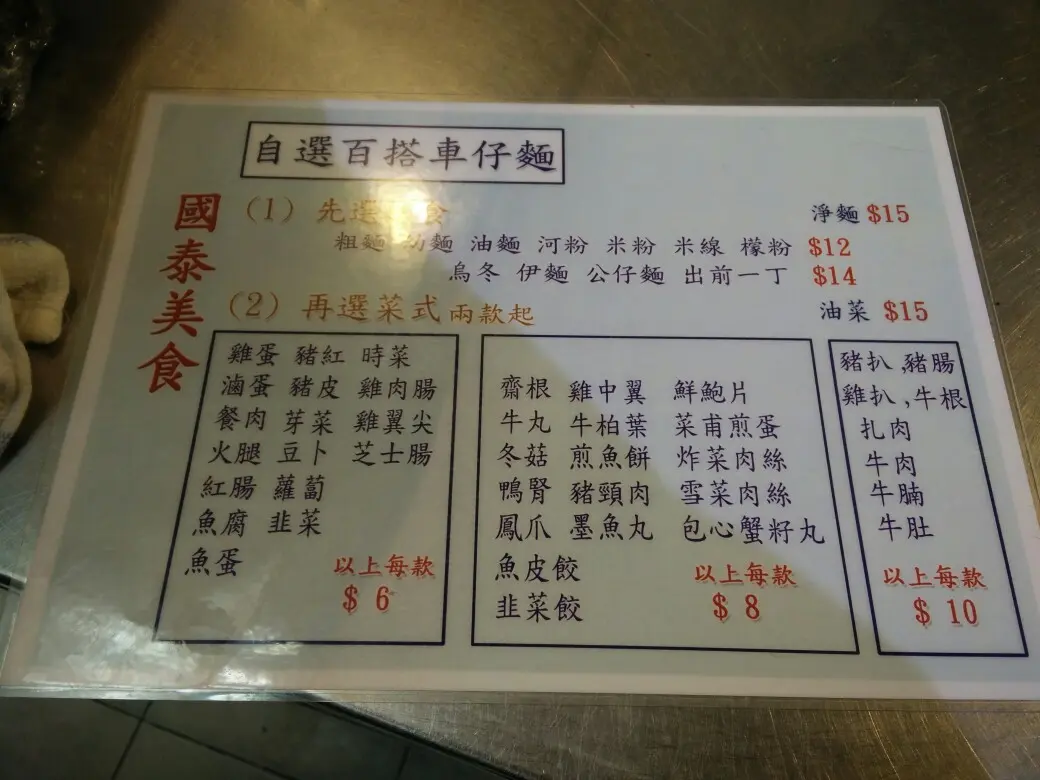 自選百搭車仔麵
國泰美食
(1) 先選 食
淨麵 $15
粗麵 幼麵 油麵 河粉 米粉 米線 檬粉 $12
烏冬 伊麵 公仔麵 出前一丁 $14
(2) 再選菜式 兩款起
油菜 $15
雞蛋 豬紅 時菜
滷蛋 豬皮 雞肉腸
餐肉 芽菜 雞翼尖
火腿 豆卜 芝士腸
紅腸 蘿蔔
魚腐 韭菜
魚蛋
以上每款
$ 6
齋根 雞中翼 鮮鮑片
牛丸 牛柏葉 菜甫煎蛋
冬菇 煎魚餅 炸菜肉絲
鴨腎 豬頸肉 雪菜肉絲
鳳爪 墨魚丸 包心蟹籽丸
魚皮餃
韭菜餃
以上每款
$ 8
豬扒,豬腸
雞扒,牛根
扎肉
牛肉
牛腩
牛肚
以上每款
$ 10